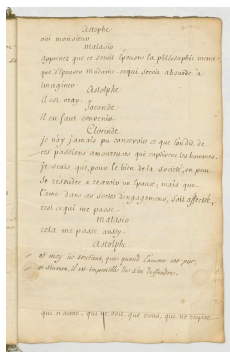 Astolphe
oui monsieur
malasio
apprenez que ce seroit épouser la philosophie meme
que d'épouser madame. ce qui seroit absurde a
imaginer
Astolphe
il est vray.
Joconde
il en faut convenir
Clorinde
je n'ay jamais pu concevoir ce que l'on dit de
ces passions amoureuses que captivent les hommes.
je scais que, pour le bien de la société, on peut
se résoudre a recevoir un époux; mais que
l'ame dans ces sortes d'engagemens, soit affectée,
c'est ce qui me passe.
malasio
cela me passe aussy.
Astolphe
et moy je soutiens, que quand l'amour est pur,
et sincere, il est impossible de s'en deffendre.
qui n'aime, qui ne voit, que vous, qui ne respire